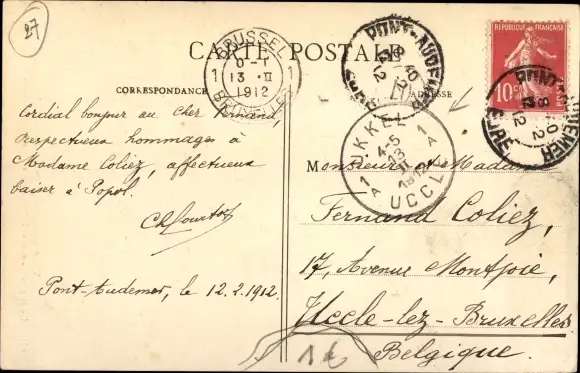 27
CARTE POSTALE
CORRESPONDANCE
ADRESSE
BRUSSEL
1 1
13 - II
1912
BRUXELLES
PONT-AUDEMER
RÉPUBLIQUE FRANÇAISE
10c
POSTES
PONT-AUDEMER
8 40
12 - 2
12
EURE
UKKEL
1A 1A
4-5
13
II
1912
UCCLE
Cordial bonjour au cher Fernand,
respectueux hommages à
Madame Coliez, affectueux
baiser à Popol.
Pont-Audemer, le 12.2.1912.
Monsieur & Madame
Fernand Coliez,
17, Avenue Montjoie,
Uccle-lez-Bruxelles
Belgique.
1€